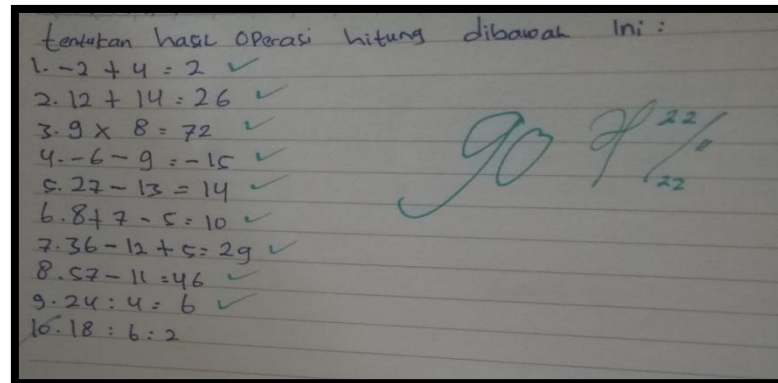 tentukan hasil operasi hitung dibawah ini :
1. -2 + 4 = 2 ✓
2. 12 + 14 = 26 ✓
3. 9 x 8 = 72 ✓
4. -6 - 9 = -15 ✓
5. 27 - 13 = 14 ✓
6. 8 + 7 - 5 = 10 ✓
7. 36 - 12 + 5 = 29 ✓
8. 57 - 11 = 46 ✓
9. 24 : 4 = 6 ✓
10. 18 : 6 : 2
90
22
22